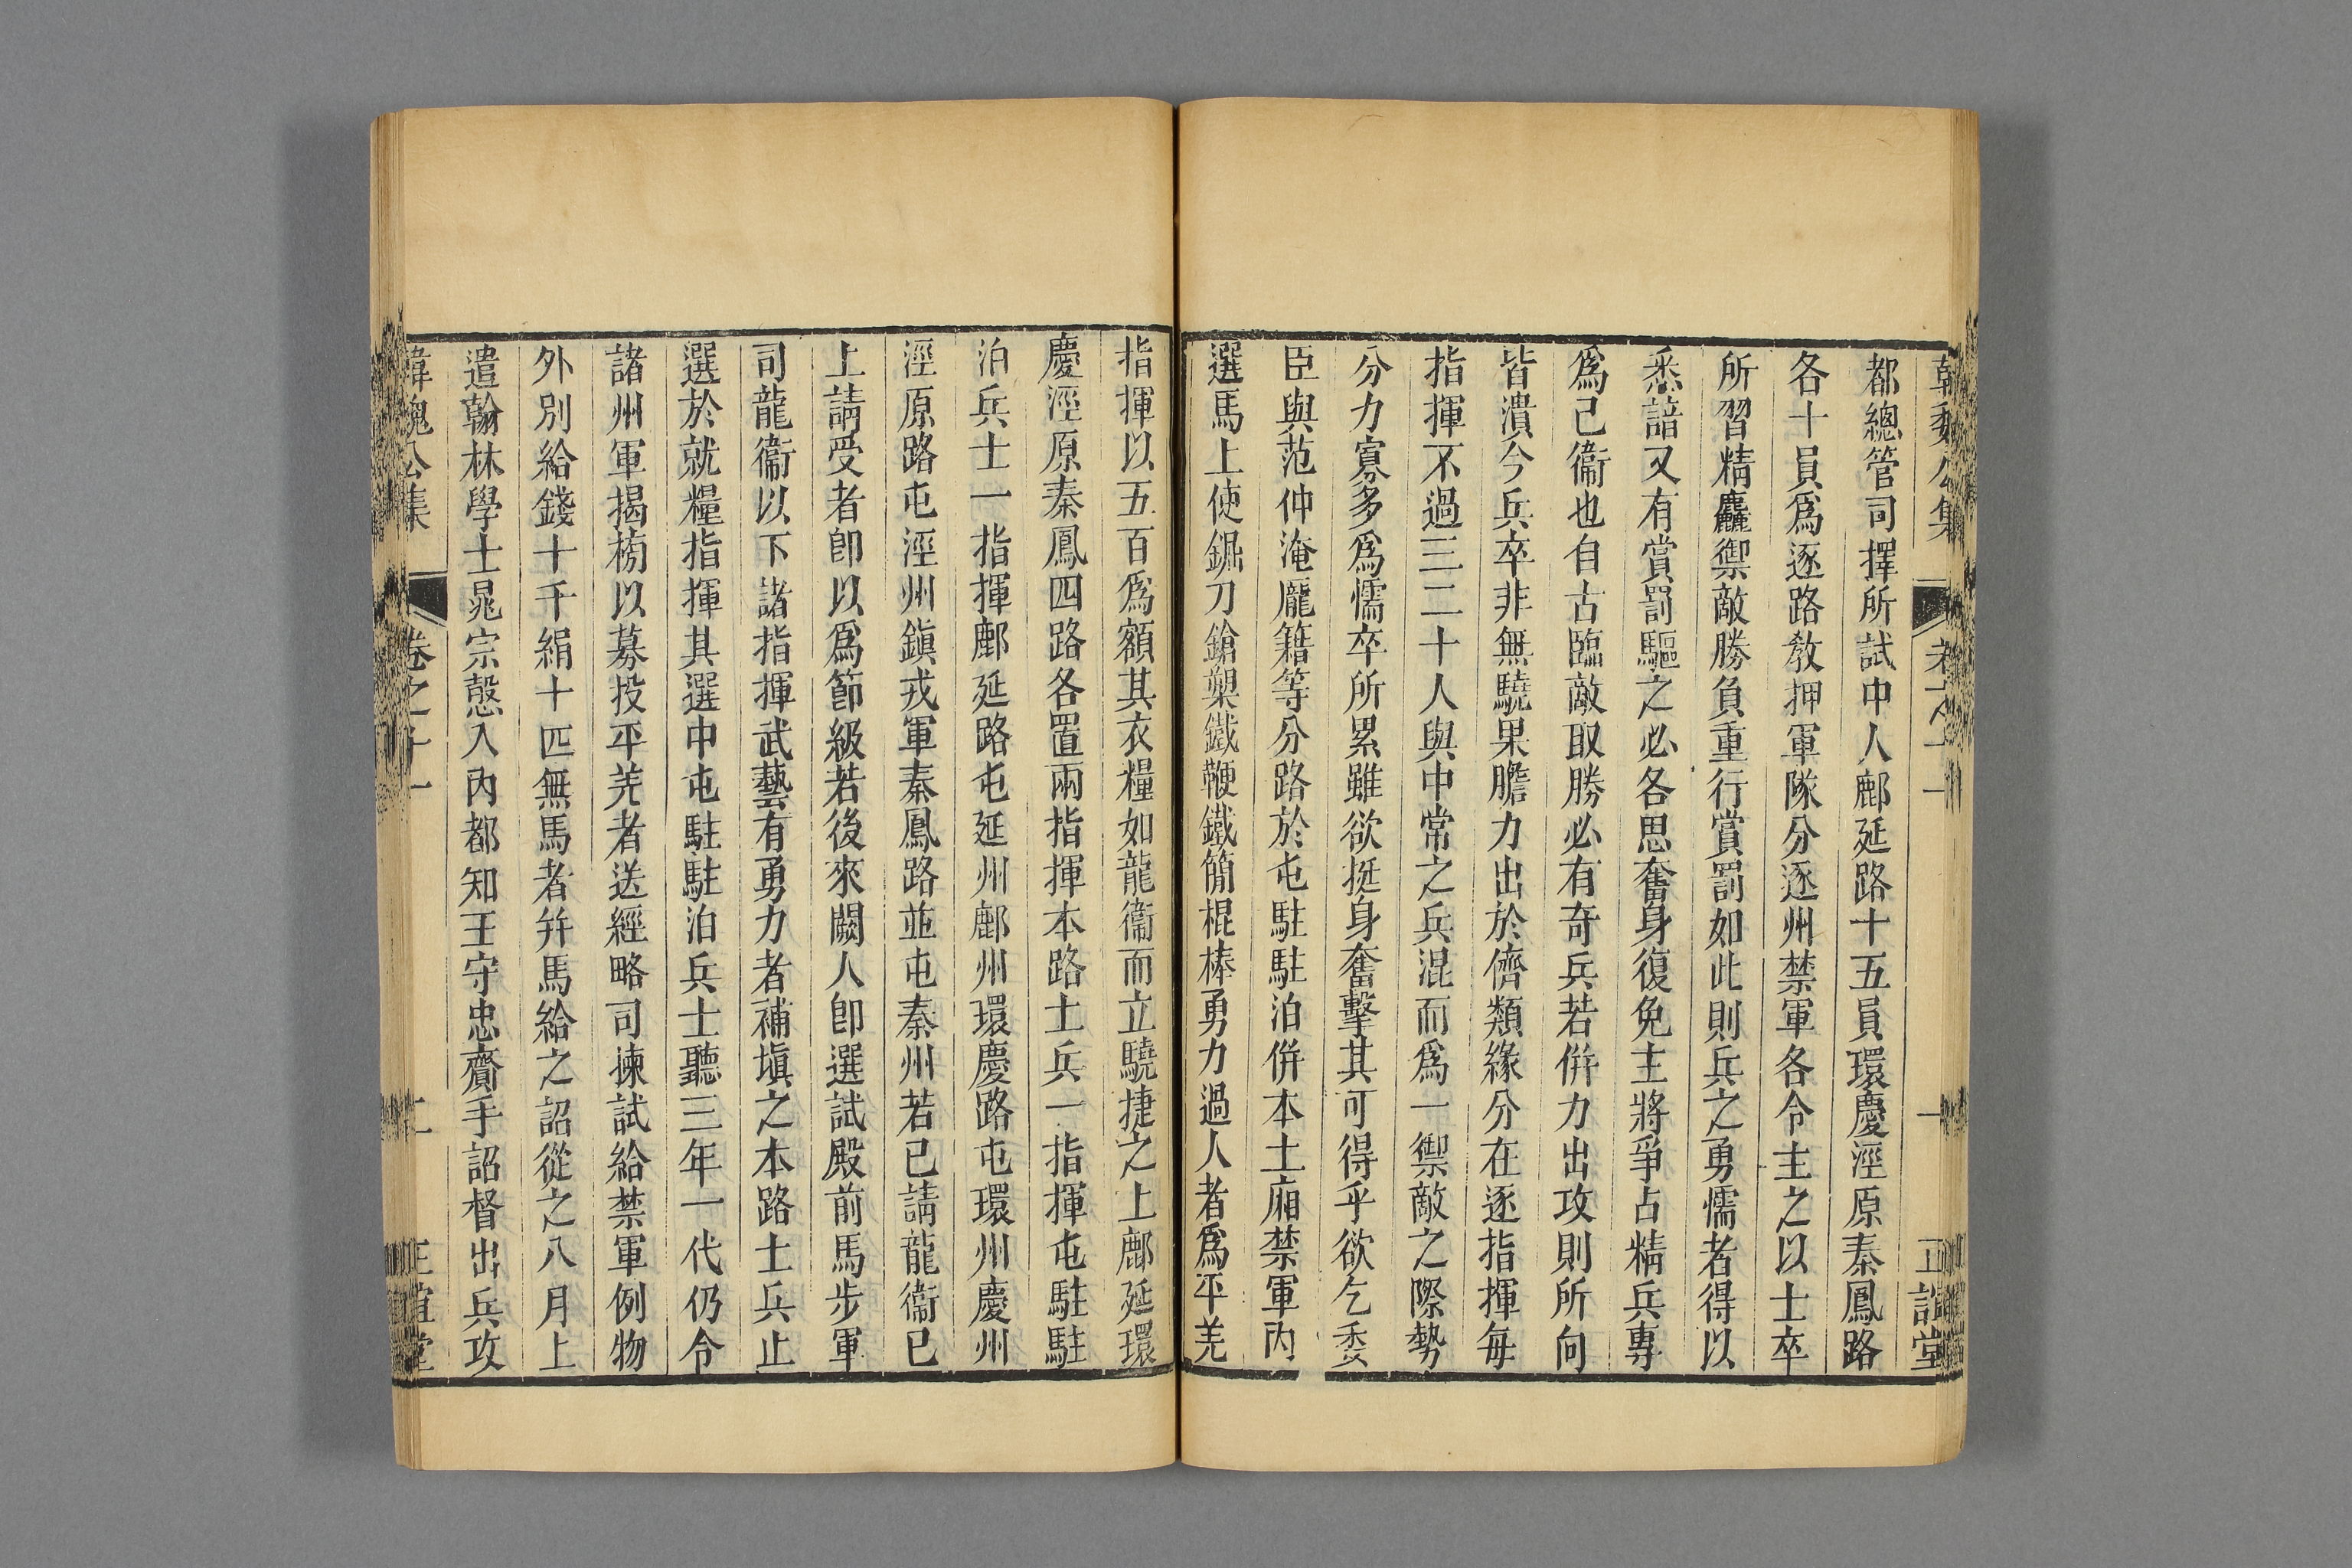 韓魏公集 卷之十一 一 正誼堂
都總管司擇所試中人鄜延路十五員環慶涇原秦鳳路
各十員爲逐路教押軍隊分逐州禁軍各令主之以士卒
所習精麤禦敵勝負重行賞罰如此則兵之勇懦者得以
悉諳又有賞罰驅之必各思奮身復免主將爭占精兵專
爲己衞也自古臨敵取勝必有奇兵若倂力出攻則所向
皆潰今兵卒非無驍果膽力出於儕類緣分在逐指揮每
指揮不過三二十人與中常之兵混而爲一禦敵之際勢
分力寡多爲懦卒所累雖欲挺身奮擊其可得乎欲乞委
臣與范仲淹龎籍等分路於屯駐駐泊倂本土廂禁軍內
選馬上使鋸刀鎗槊鐵鞭鐵簡棍棒勇力過人者爲平羌
指揮以五百爲額其衣糧如龍衞而立驍捷之上鄜延環
慶涇原秦鳳四路各置兩指揮本路士兵一指揮屯駐駐
泊兵士一指揮鄜延路屯延州鄜州環慶路屯環州慶州
涇原路屯涇州鎭戎軍秦鳳路並屯秦州若已請龍衞已
上請受者卽以爲節級若後來闕人卽選試殿前馬步軍
司龍衞以下諸指揮武藝有勇力者補塡之本路士兵止
選於就糧指揮其選中屯駐駐泊兵士聽三年一代仍令
諸州軍揭榜以募投平羌者送經略司揀試給禁軍例物
外別給錢十千絹十匹無馬者幷馬給之詔從之八月上
遣翰林學士晁宗慤入內都知王守忠齎手詔督出兵攻
韓魏公集 卷之十一 二 正誼堂